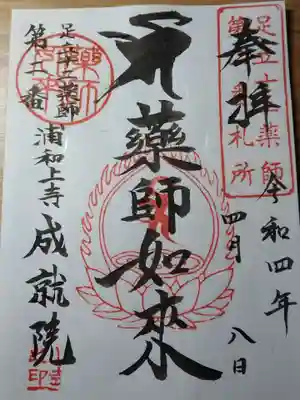 奉拝
足立十二薬師
第二番札所
令和四年
四月八日
薬師如來
足立十二薬師
第二番
浦和上寺
成就院